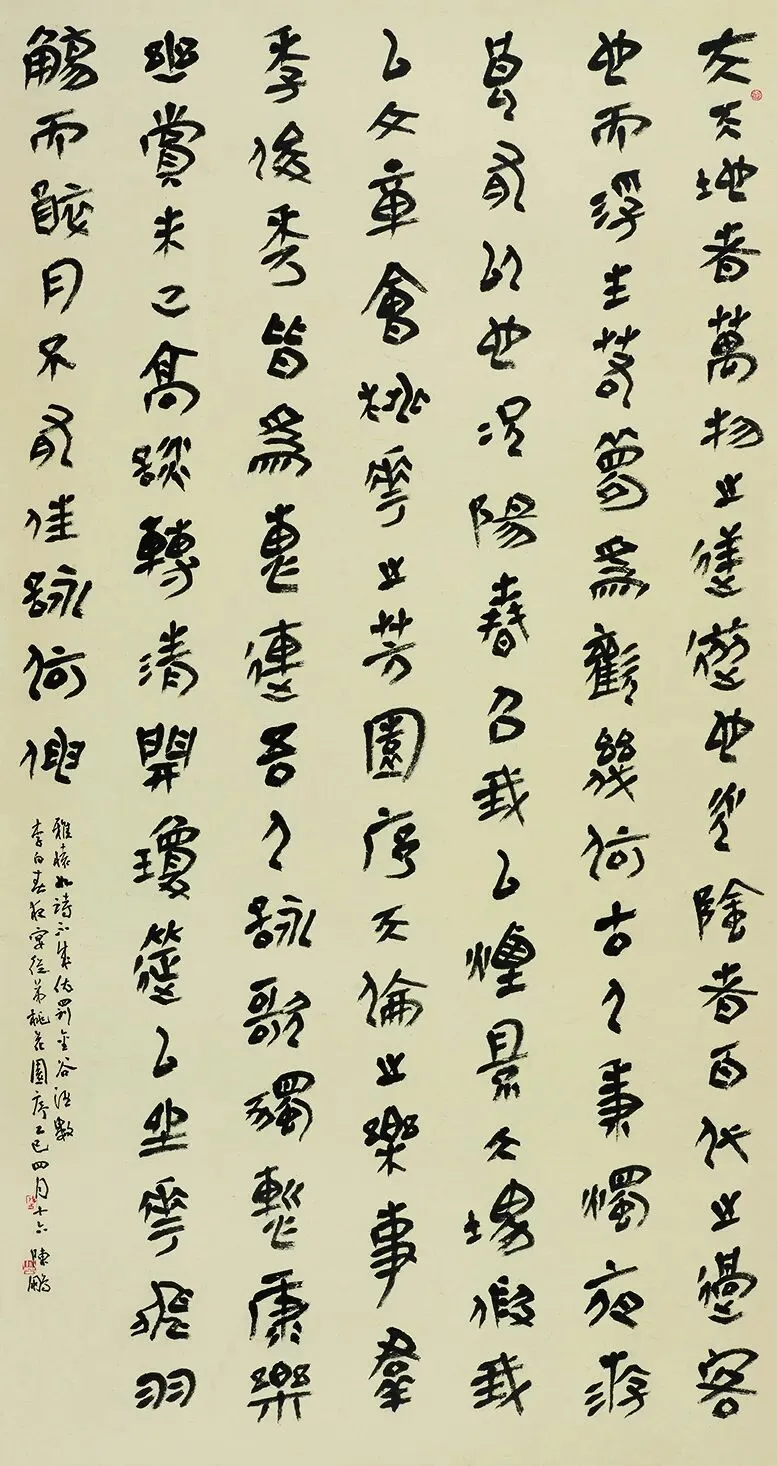 夫天地者萬物之逆旅也光陰者百代之過客
也而浮生若夢爲歡幾何古人秉燭夜游
良有以也況陽春召我以煙景大塊假我
以文章會桃花之芳園序天倫之樂事羣
季俊秀皆爲惠連吾人詠歌獨慚康樂
幽賞未已高談轉清開瓊筵以坐花飛羽
觴而醉月不有佳詠何伸
雅懷如詩不成依罰金谷酒數
李白春夜宴從弟桃花園序乙巳四月十六 陳鵬